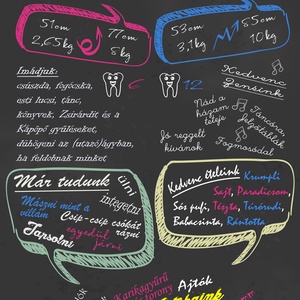 51cm
2,65kg
77cm
8kg
53cm
3,1kg
85cm
10kg
Imádjuk:
csúszda, fogócska,
esti lucsi, tánc,
könyvek, Zsiráfdit és a
Kápopó gyűléseket,
dühöngni az (utazó)ágyban,
ha feldobnak minket
6
12
Kedvenc
Zenéink
Nád a
házam
teteje
Táncóra,
jeltáblák
Jó reggelt
kívánok
Fogmosódal
Már tudunk
ülni
Mászni mint a
villám
integetni
Csip-csip csókát
rázni
egyedül
járni
Tapsolni
Kedvenc ételeink
Krumpli
Sajt, Paradicsom,
Sós pufi, Tészta, Túrórudi,
Babacsinta, Rántotta
Karikagyűrű
Ajtók